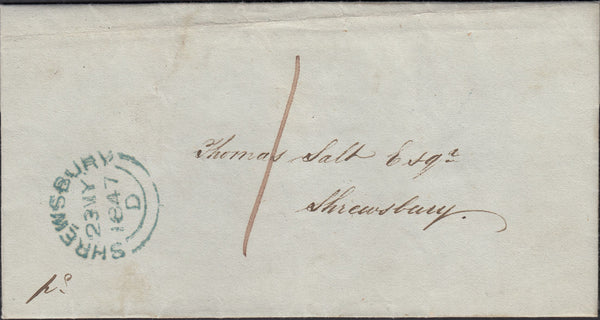 1
Thomas Salt Esqr
Shrewsbury.
SHREWSBURY
23MY
1847
D
pd